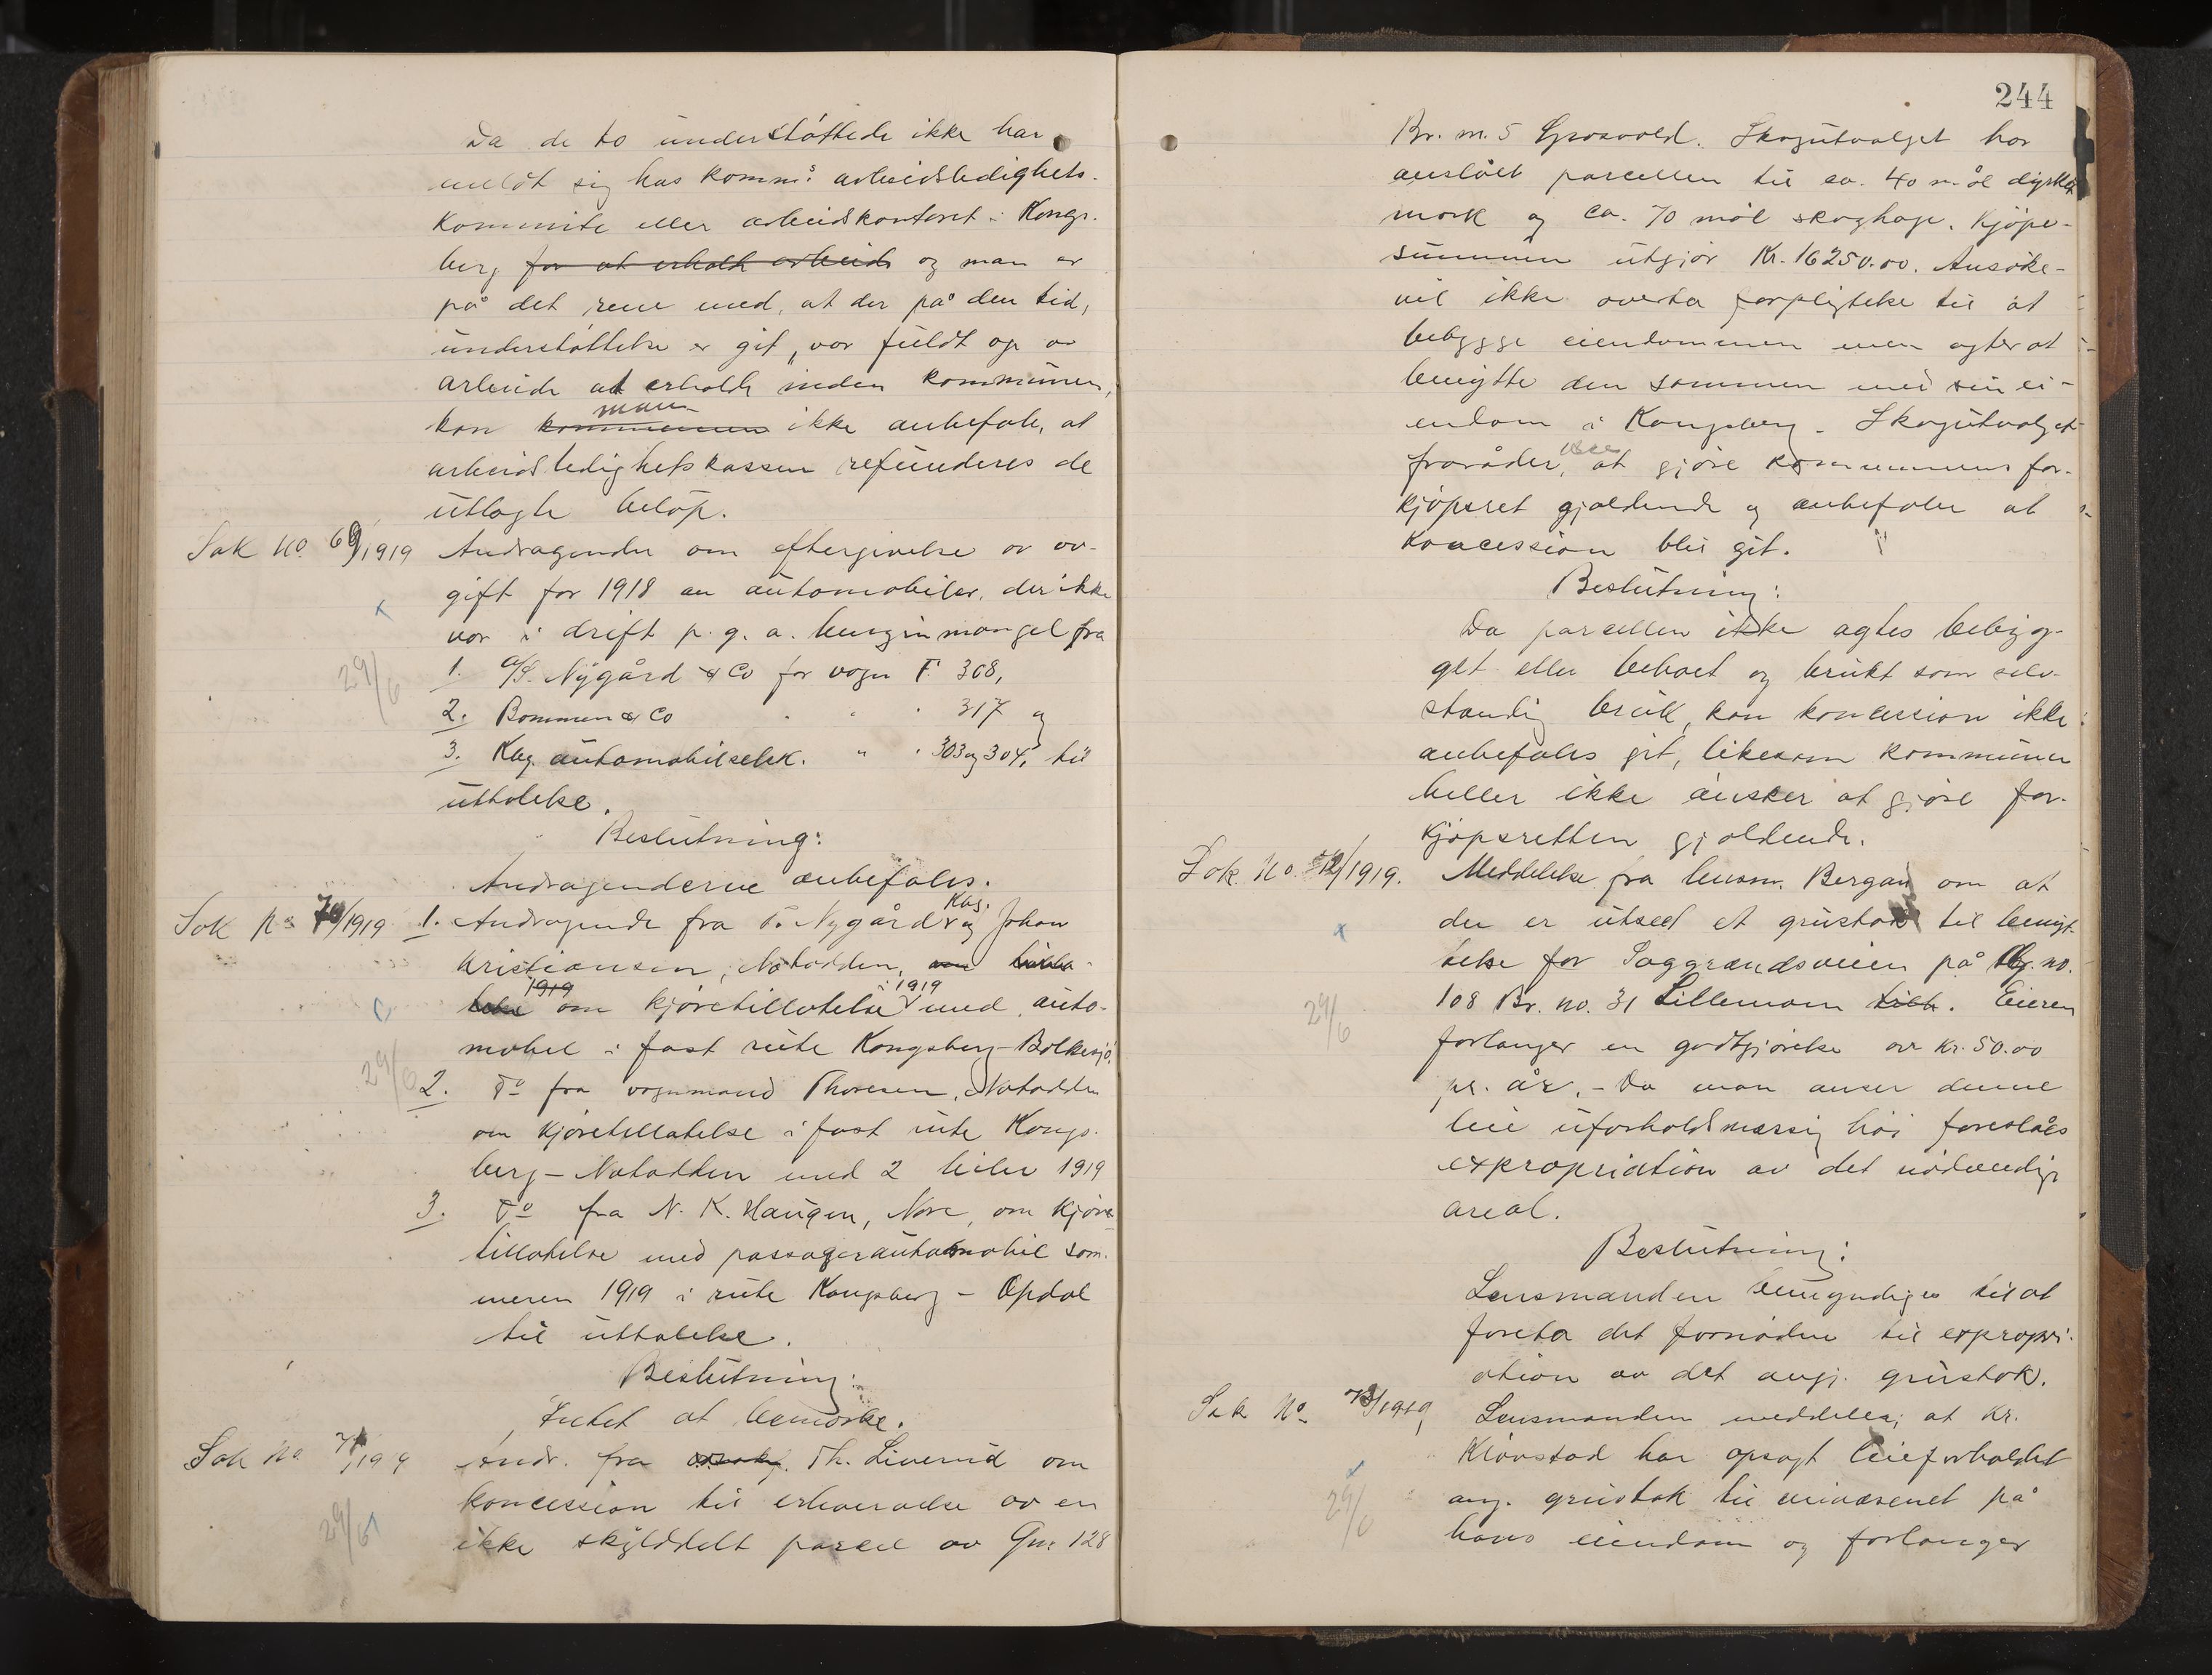 Da de to understøttede ikke har
meldt sig hos komm.s arbeidsledighets-
kommite eller arbeidskontoret i Kongs-
berg for at erholde arbeide og man er
på det rene med, at der på den tid,
understøttelse er git, var fuldt op av
arbeide at erholde inden kommunen,
man
kan kommunen ikke anbefale, at
arbeidsledighetskassen refunderes de
utlagte beløp.
Sak no. 69/1919 Andragender om eftergivelse av av-
gift for 1918 av automobiler, der ikke
var i drift p. g. a. benzinmangel fra
29/6
1. A/S. Nygård & Co for vogn F. 308,
2. Bommen & Co " " " 317 og
3. Kbg. automobilselsk. " " 303 og 304, til
uttalelse.
Beslutning:
Andragenderne anbefales.
Kbg.
Sak no 70/1919 1. Andragende fra T. Nygård og Johan
Kristiansen, Notodden, om
1919 i 1919
om kjøretillatelse med auto-
mobil i fast rute Kongsberg-Bolkesjø.
29/6
2. Do fra vognmand Thoresen, Notodden
om kjøretillatelse i fast rute Kongs-
berg - Notodden med 2 biler 1919
3. Do fra N. K. Haugen, Nore, om kjøre-
tillatelse med passagerautomobil som-
meren 1919 i rute Kongsberg - Opdal
til uttalelse.
Beslutning:
Intet at bemerke.
Sak no 71/1919 Andr. fra Th. Liverud om
koncession til erhvervelse av en
29/6
ikke skylddelt parcel av Gnr 128
244
Br. nr. 5 Gravvold. Skogutvalget har
anslået parcellen til ca. 40 mål dyrket
mark og ca. 70 mål skoghage. Kjøpe-
summen utgjør Kr. 16250.00. Ansøke-
vil ikke overta forpligtelse til at
bebygge eiendommen men agter at
benytte den sammen med sin ei-
endom i Kongsberg. Skogutvalget
fraråder, at gjøre kommunens for-
kjøpsret gjældende og anbefaler at
koncession blir git.
Beslutning:
Da parcellen ikke agtes bebyg-
get eller beboet og brukt som selv-
stændig bruk, kan koncession ikke
anbefales git, likesom kommunen
heller ikke ønsker at gjøre for-
kjøpsretten gjældende.
Sak no. 72/1919. Meddelelse fra lensm. Bergan om at
der er utseet et grustak til benyt-
telse for Saggrændsveien på Gr. no.
29/6
108 Br. no. 31 Lillemoen. Eieren
forlanger en godtgjørelse av kr. 50.00
pr. år. - Da man anser denne
leie uforholdsmæssig høi foreslåes
expropriation av det nødvendige
areal.
Beslutning:
Lensmanden bemyndiges til at
foreta det fornødne til expropri-
ation av det angj. grustak.
Sak No 73/1919, Lensmanden meddeler, at Kr.
Kløvstad har opsagt leieforholdet
29/6
ang. grustak til veivæsenet på
hans eiendom og forlanger